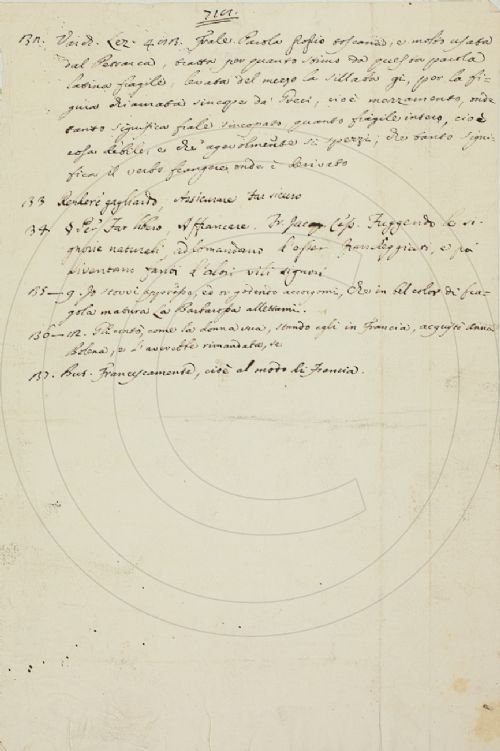 132. Varch. Lez. 4. Frale Parola prosso toscana, e molto usata
dal Petrarca, tratta per quanto stimo da questa parola
latina fragile, levata del mezzo la sillaba gi, per la fi-
gura chiamata sincope da' Greci, cioè mozzamento, onde
tanto significa frale sincopato quanto fragile intero, cioè
cosa debile, e che agevolmente si spezzi, che tanto signi-
fica il verbo frangere, onde è derivato
133 Rendere gagliardo, Assicurare Far sicuro
134. § Per Far libero, Affrancare. Fr. Jacop. Cess. Fuggendo le si-
gnorie naturali, addomandano l'esser franchggiati, e poi
diventano fanti d'altri vili signori
135 — 9. Io stovvi appresso, ed or godendo accorgomi, Che in bel color di fra-
gola matura La Barbarossa allettami.
136 — 12. come la donna sua, stando egli in Francia, acquistò Anna
Bolena, e l'averebbe rimandata, se
137. But. Francescamente, cioè al modo di Francia.